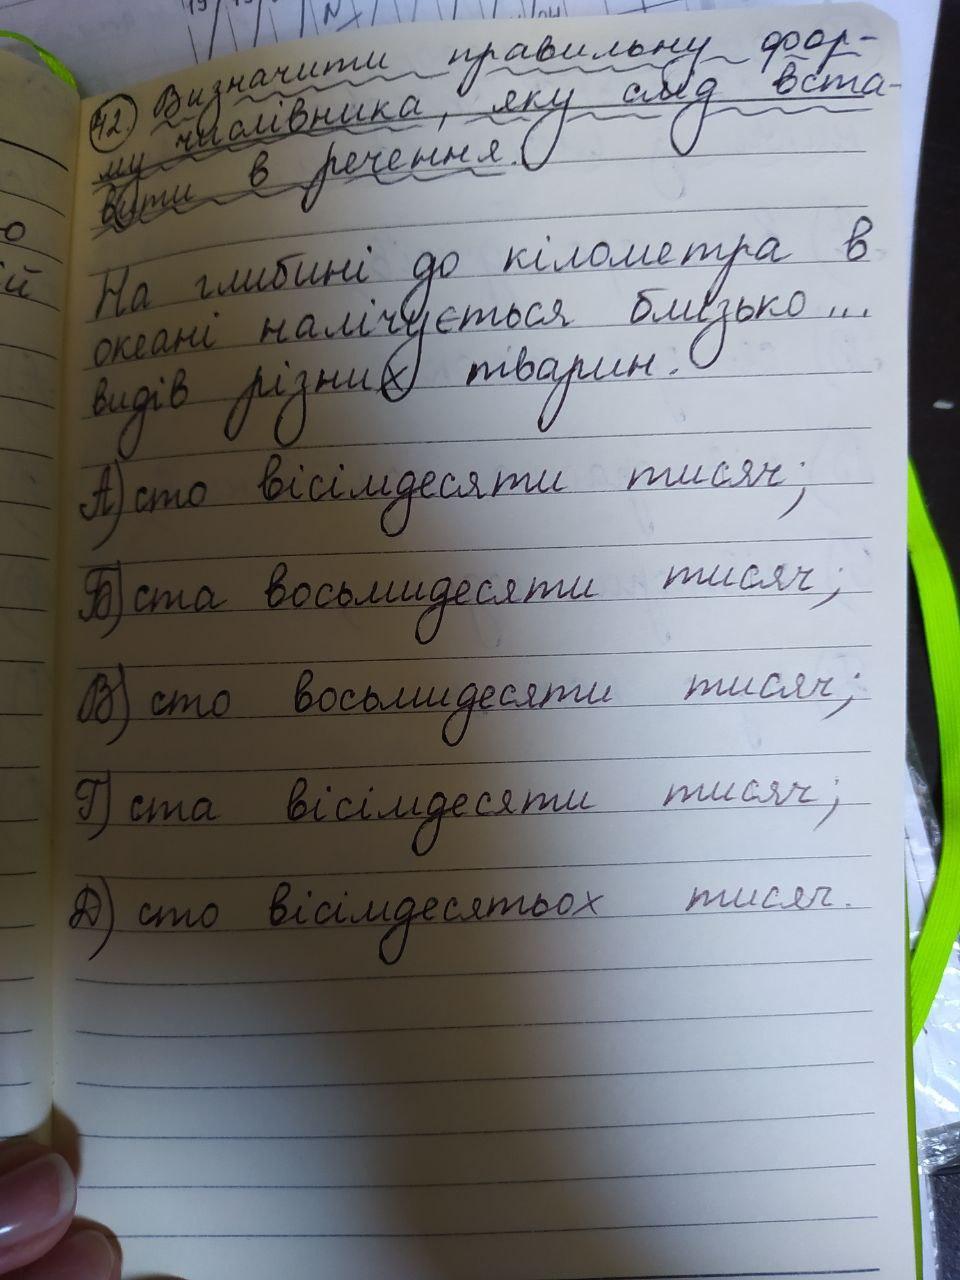 42. Визначити правильну фор-
му числівника, яку слід вста-
вити в речення.
На глибині до кілометра в
океані налічується близько...
видів різних тварин.
А) сто вісімдесяти тисяч;
Б) ста восьмидесяти тисяч;
В) сто восьмидесяти тисяч;
Г) ста вісімдесяти тисяч;
Д) сто вісімдесятьох тисяч.